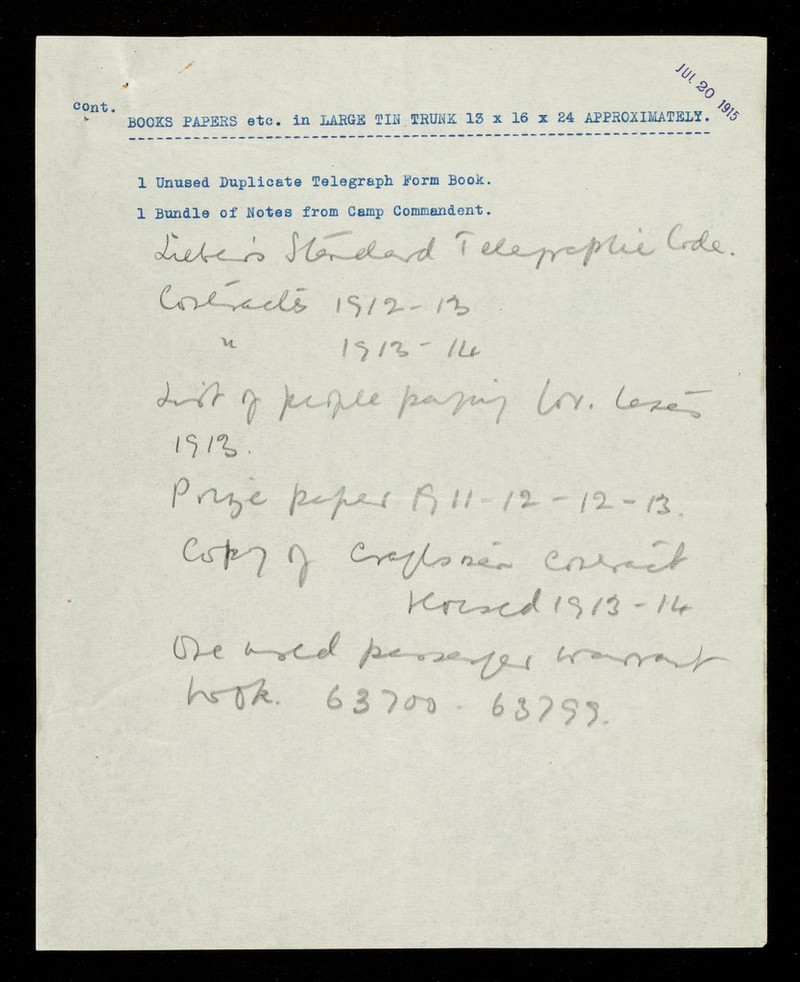 JUL 20 1915
cont.
BOOKS PAPERS etc. in LARGE TIN TRUNK 13 x 16 x 24 APPROXIMATELY.
1 Unused Duplicate Telegraph Form Book.
1 Bundle of Notes from Camp Commandent.
Lieber's Standard Telegraphic Code.
Contracts 1912-13
" 1913-14
List of people paying Gov. taxes
1913.
Prize paper 1911-12-12-13.
Copy of Craftsmen contract
revised 1913-14
One used passenger warrant
book. 63700 - 63799.